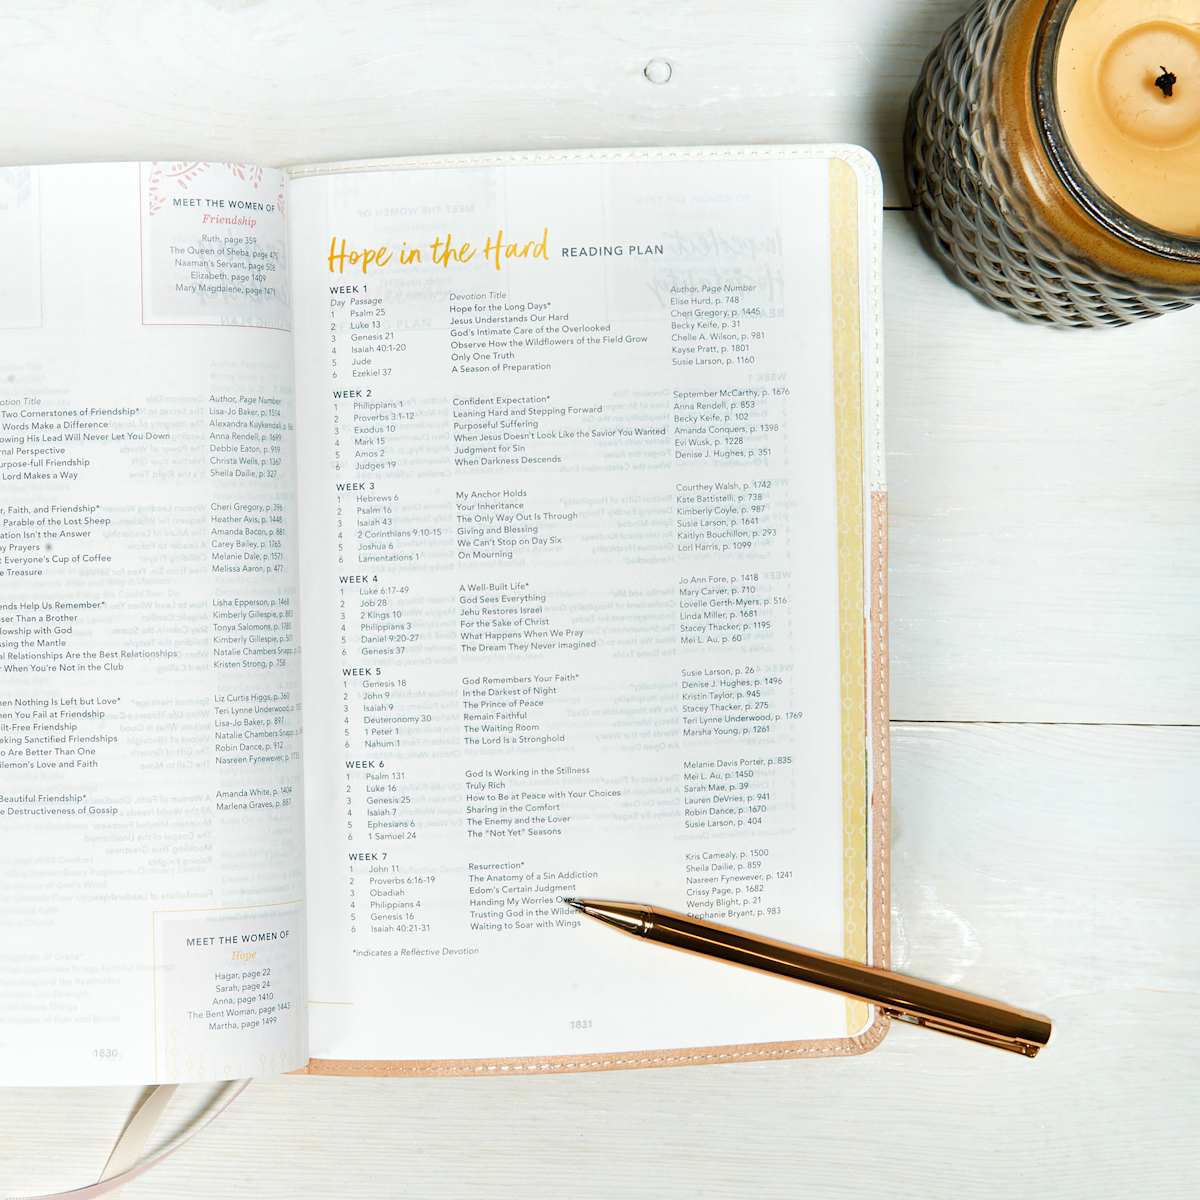 MEET THE WOMEN OF
Friendship
Ruth, page 359
The Queen of Sheba, page 475
Naaman's Servant, page 508
Elizabeth, page 1409
Mary Magdalene, page 1471
Devotion Title Author, Page Number
Two Cornerstones of Friendship* Lisa-Jo Baker, p. 1514
Words Make a Difference Alexandra Kuykendall, p.
Lead Will Never Let You Down Anna Rendell, p. 1699
Perspective Debbie Eaton, p. 919
Friendship Christa Wells, p. 1367
Lord Makes a Way Sheila Dailie, p. 327
Faith, and Friendship* Cheri Gregory, p. 396
Parable of the Lost Sheep Heather Avis, p. 1448
Isn't the Answer Amanda Bacon, p. 881
Prayers Carey Bailey, p. 1765
Everyone's Cup of Coffee Melanie Dale, p. 1571
Treasure Melissa Aaron, p. 472
Help Us Remember* Lisha Epperson, p. 1468
Than a Brother Kimberly Gillespie, p.
with God Tonya Salomons, p. 1785
the Mantle Kimberly Gillespie, p.
Relationships Are the Best Relationships Natalie Chambers Snapp,
When You're Not in the Club Kristen Strong, p. 758
Nothing Is Left but Love* Liz Curtis Higgs, p. 360
You Fail at Friendship Teri Lynne Underwood,
Friendship Lisa-Jo Baker, p. 897
Sanctified Friendships Natalie Chambers Snapp,
Are Better Than One Robin Dance, p. 912
Love and Faith Nasreen Fynewever, p.
Beautiful Friendship* Amanda White, p. 1404
Destructiveness of Gossip Marlena Graves, p. 887
MEET THE WOMEN OF
Hope
Hagar, page 22
Sarah, page 24
Anna, page 1410
The Bent Woman, page 1443
Martha, page 1499
1830
Hope in the Hard READING PLAN
WEEK 1
Day Passage Devotion Title Author, Page Number
1 Psalm 25 Hope for the Long Days* Elise Hurd, p. 748
2 Luke 13 Jesus Understands Our Hard Cheri Gregory, p. 1445
3 Genesis 21 God's Intimate Care of the Overlooked Becky Keife, p. 31
4 Isaiah 40:1-20 Observe How the Wildflowers of the Field Grow Chelle A. Wilson, p. 981
5 Jude Only One Truth Kayse Pratt, p. 1801
6 Ezekiel 37 A Season of Preparation Susie Larson, p. 1160
WEEK 2
1 Philippians 1 Confident Expectation* September McCarthy, p. 1676
2 Proverbs 3:1-12 Leaning Hard and Stepping Forward Anna Rendell, p. 853
3 Exodus 10 Purposeful Suffering Becky Keife, p. 102
4 Mark 15 When Jesus Doesn't Look Like the Savior You Wanted Amanda Conquers, p. 1398
5 Amos 2 Judgment for Sin Evi Wusk, p. 1228
6 Judges 19 When Darkness Descends Denise J. Hughes, p. 351
WEEK 3
1 Hebrews 6 My Anchor Holds Courthey Walsh, p. 1742
2 Psalm 16 Your Inheritance Kate Battistelli, p. 738
3 Isaiah 43 The Only Way Out Is Through Kimberly Coyle, p. 987
4 2 Corinthians 9:10-15 Giving and Blessing Susie Larson, p. 1641
5 Joshua 6 We Can't Stop on Day Six Kaitlyn Bouchillon, p. 293
6 Lamentations 1 On Mourning Lori Harris, p. 1099
WEEK 4
1 Luke 6:17-49 A Well-Built Life* Jo Ann Fore, p. 1418
2 Job 28 God Sees Everything Mary Carver, p. 710
3 2 Kings 10 Jehu Restores Israel Lovelle Gerth-Myers, p. 516
4 Philippians 3 For the Sake of Christ Linda Miller, p. 1681
5 Daniel 9:20-27 What Happens When We Pray Stacey Thacker, p. 1195
6 Genesis 37 The Dream They Never Imagined Mei L. Au, p. 60
WEEK 5
1 Genesis 18 God Remembers Your Faith* Susie Larson, p. 26
2 John 9 In the Darkest of Night Denise J. Hughes, p. 1496
3 Isaiah 9 The Prince of Peace Kristin Taylor, p. 945
4 Deuteronomy 30 Remain Faithful Stacey Thacker, p. 275
5 1 Peter 1 The Waiting Room Teri Lynne Underwood, p. 1769
6 Nahum 1 The Lord Is a Stronghold Marsha Young, p. 1261
WEEK 6
1 Psalm 131 God Is Working in the Stillness Melanie Davis Porter, p. 835
2 Luke 16 Truly Rich Mei L. Au, p. 1450
3 Genesis 25 How to Be at Peace with Your Choices Sarah Mae, p. 39
4 Isaiah 7 Sharing in the Comfort Lauren DeVries, p. 941
5 Ephesians 6 The Enemy and the Lover Robin Dance, p. 1670
6 1 Samuel 24 The "Not Yet" Seasons Susie Larson, p. 404
WEEK 7
1 John 11 Resurrection* Kris Camealy, p. 1500
2 Proverbs 6:16-19 The Anatomy of a Sin Addiction Sheila Dailie, p. 859
3 Obadiah Edom's Certain Judgment Nasreen Fynewever, p. 1241
4 Philippians 4 Handing My Worries Over Crissy Page, p. 1682
5 Genesis 16 Trusting God in the Wendy Blight, p. 21
6 Isaiah 40:21-31 Waiting to Soar with Wings Stephanie Bryant, p. 983
*indicates a Reflective Devotion
1831